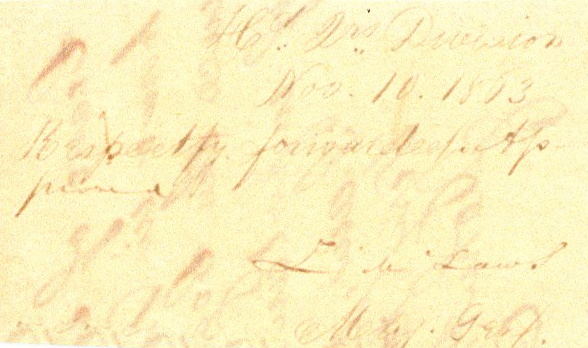 Hd. Qrs Division
Nov. 10. 1863
Respectfy forwarded. Ap-
proved
L. McLaws
Maj. Genl.